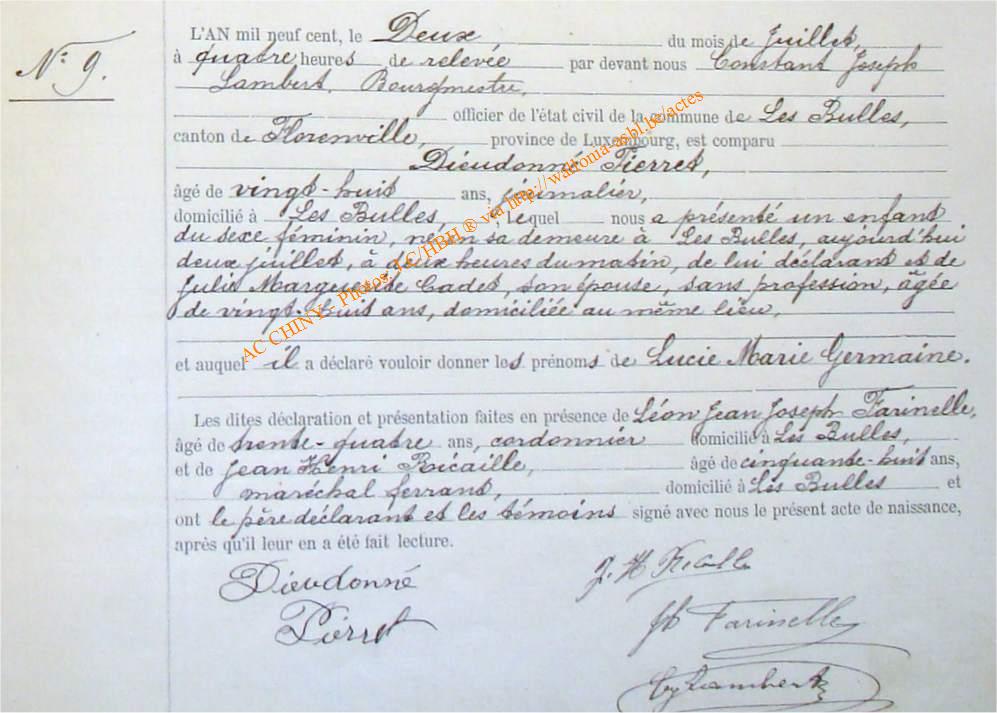 N° 9.
L'AN mil neuf cent, le Deux du mois de juillet,
à quatre heures de relevée par devant nous Constant Joseph
Lambert, Bourgmestre,
officier de l'état civil de la commune de Les Bulles,
canton de Florenville, province de Luxembourg, est comparu
Dieudonné Pierret,
âgé de vingt-huit ans, journalier,
domicilié à Les Bulles, lequel nous a présenté un enfant
du sexe féminin, né en sa demeure à Les Bulles, aujourd'hui
deux juillet, à deux heures du matin, de lui déclarant et de
Julie Marguerite Cadet, son épouse, sans profession, âgée
de vingt-huit ans, domiciliée au même lieu,
et auquel il a déclaré vouloir donner les prénoms de Lucie Marie Germaine.
Les dites déclaration et présentation faites en présence de Léon Jean Joseph Farinelle,
âgé de trente-quatre ans, cordonnier domicilié à Les Bulles,
et de Jean Henri Ricaille, âgé de cinquante-huit ans,
maréchal ferrant, domicilié à Les Bulles et
ont le père déclarant et les témoins signé avec nous le présent acte de naissance,
après qu'il leur en a été fait lecture.
Dieudonné
Pierret
J. H Ricaille
Farinelle
Lambert
AC CHINY - Photos JC/HBH ® via http://wallonia-asbl.be/actes